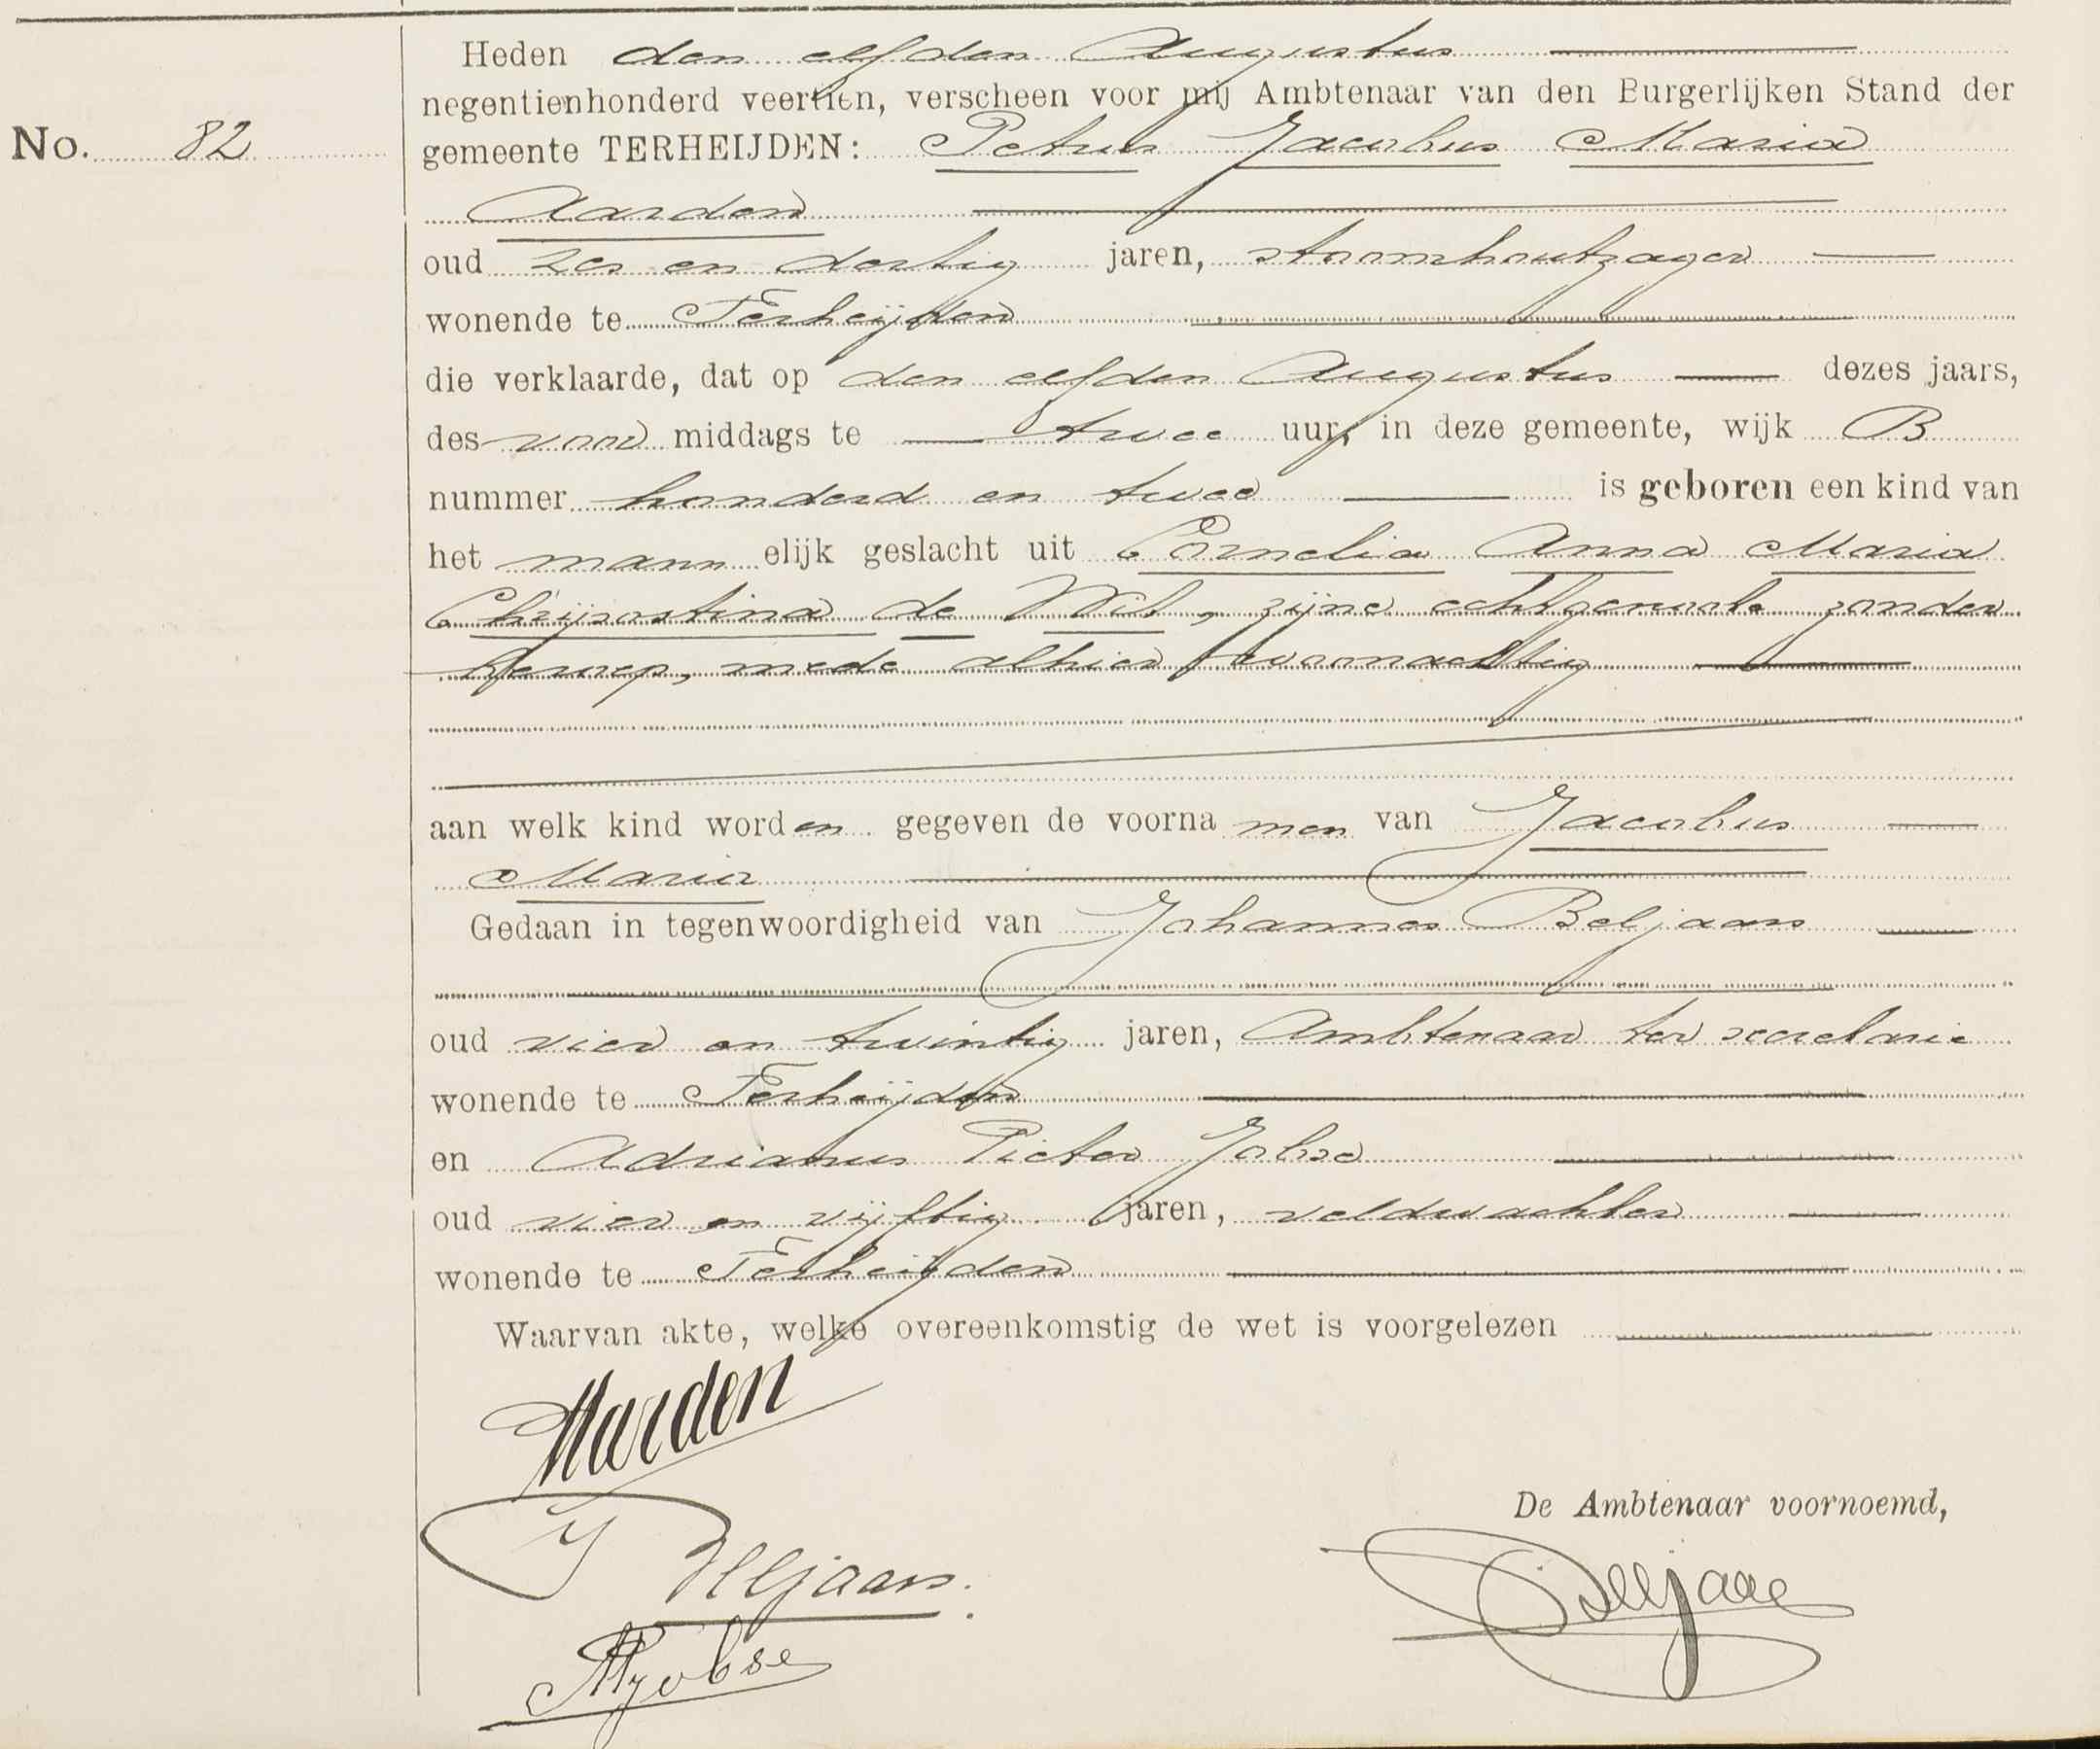 Heden den elfden Augustus
negentienhonderd veertien, verscheen voor mij Ambtenaar van den Burgerlijken Stand der
No. 82
gemeente TERHEIJDEN: Petrus Jacobus Maria
Aarden
oud zes en dertig jaren, stoomhoutzager
wonende te Terheijden
die verklaarde, dat op den elfden Augustus dezes jaars,
des voor middags te twee uur, in deze gemeente, wijk B
nummer honderd en twee is geboren een kind van
het mann elijk geslacht uit Cornelia Anna Maria
Chrijsostina de Wit, zijne echtgenoote zonder
beroep, mede alhier woonachtig
aan welk kind worden gegeven de voorna men van Jacobus
Maria
Gedaan in tegenwoordigheid van Johannes Beljaars
oud vier en twintig jaren, Ambtenaar ter secretarie
wonende te Terheijden
en Adrianus Pieter Jobse
oud vier en vijftig jaren, veldwachter
wonende te Terheijden
Waarvan akte, welke overeenkomstig de wet is voorgelezen
Aarden
De Ambtenaar voornoemd,
J Beljaars.
Beljaars
APJobse